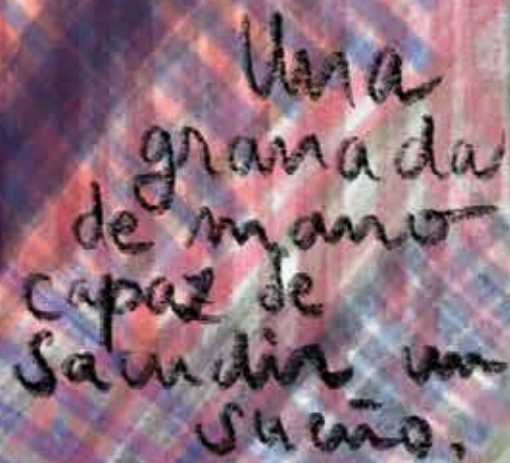 Una
granada
de mano
capaz de
sacudir un
sueño.